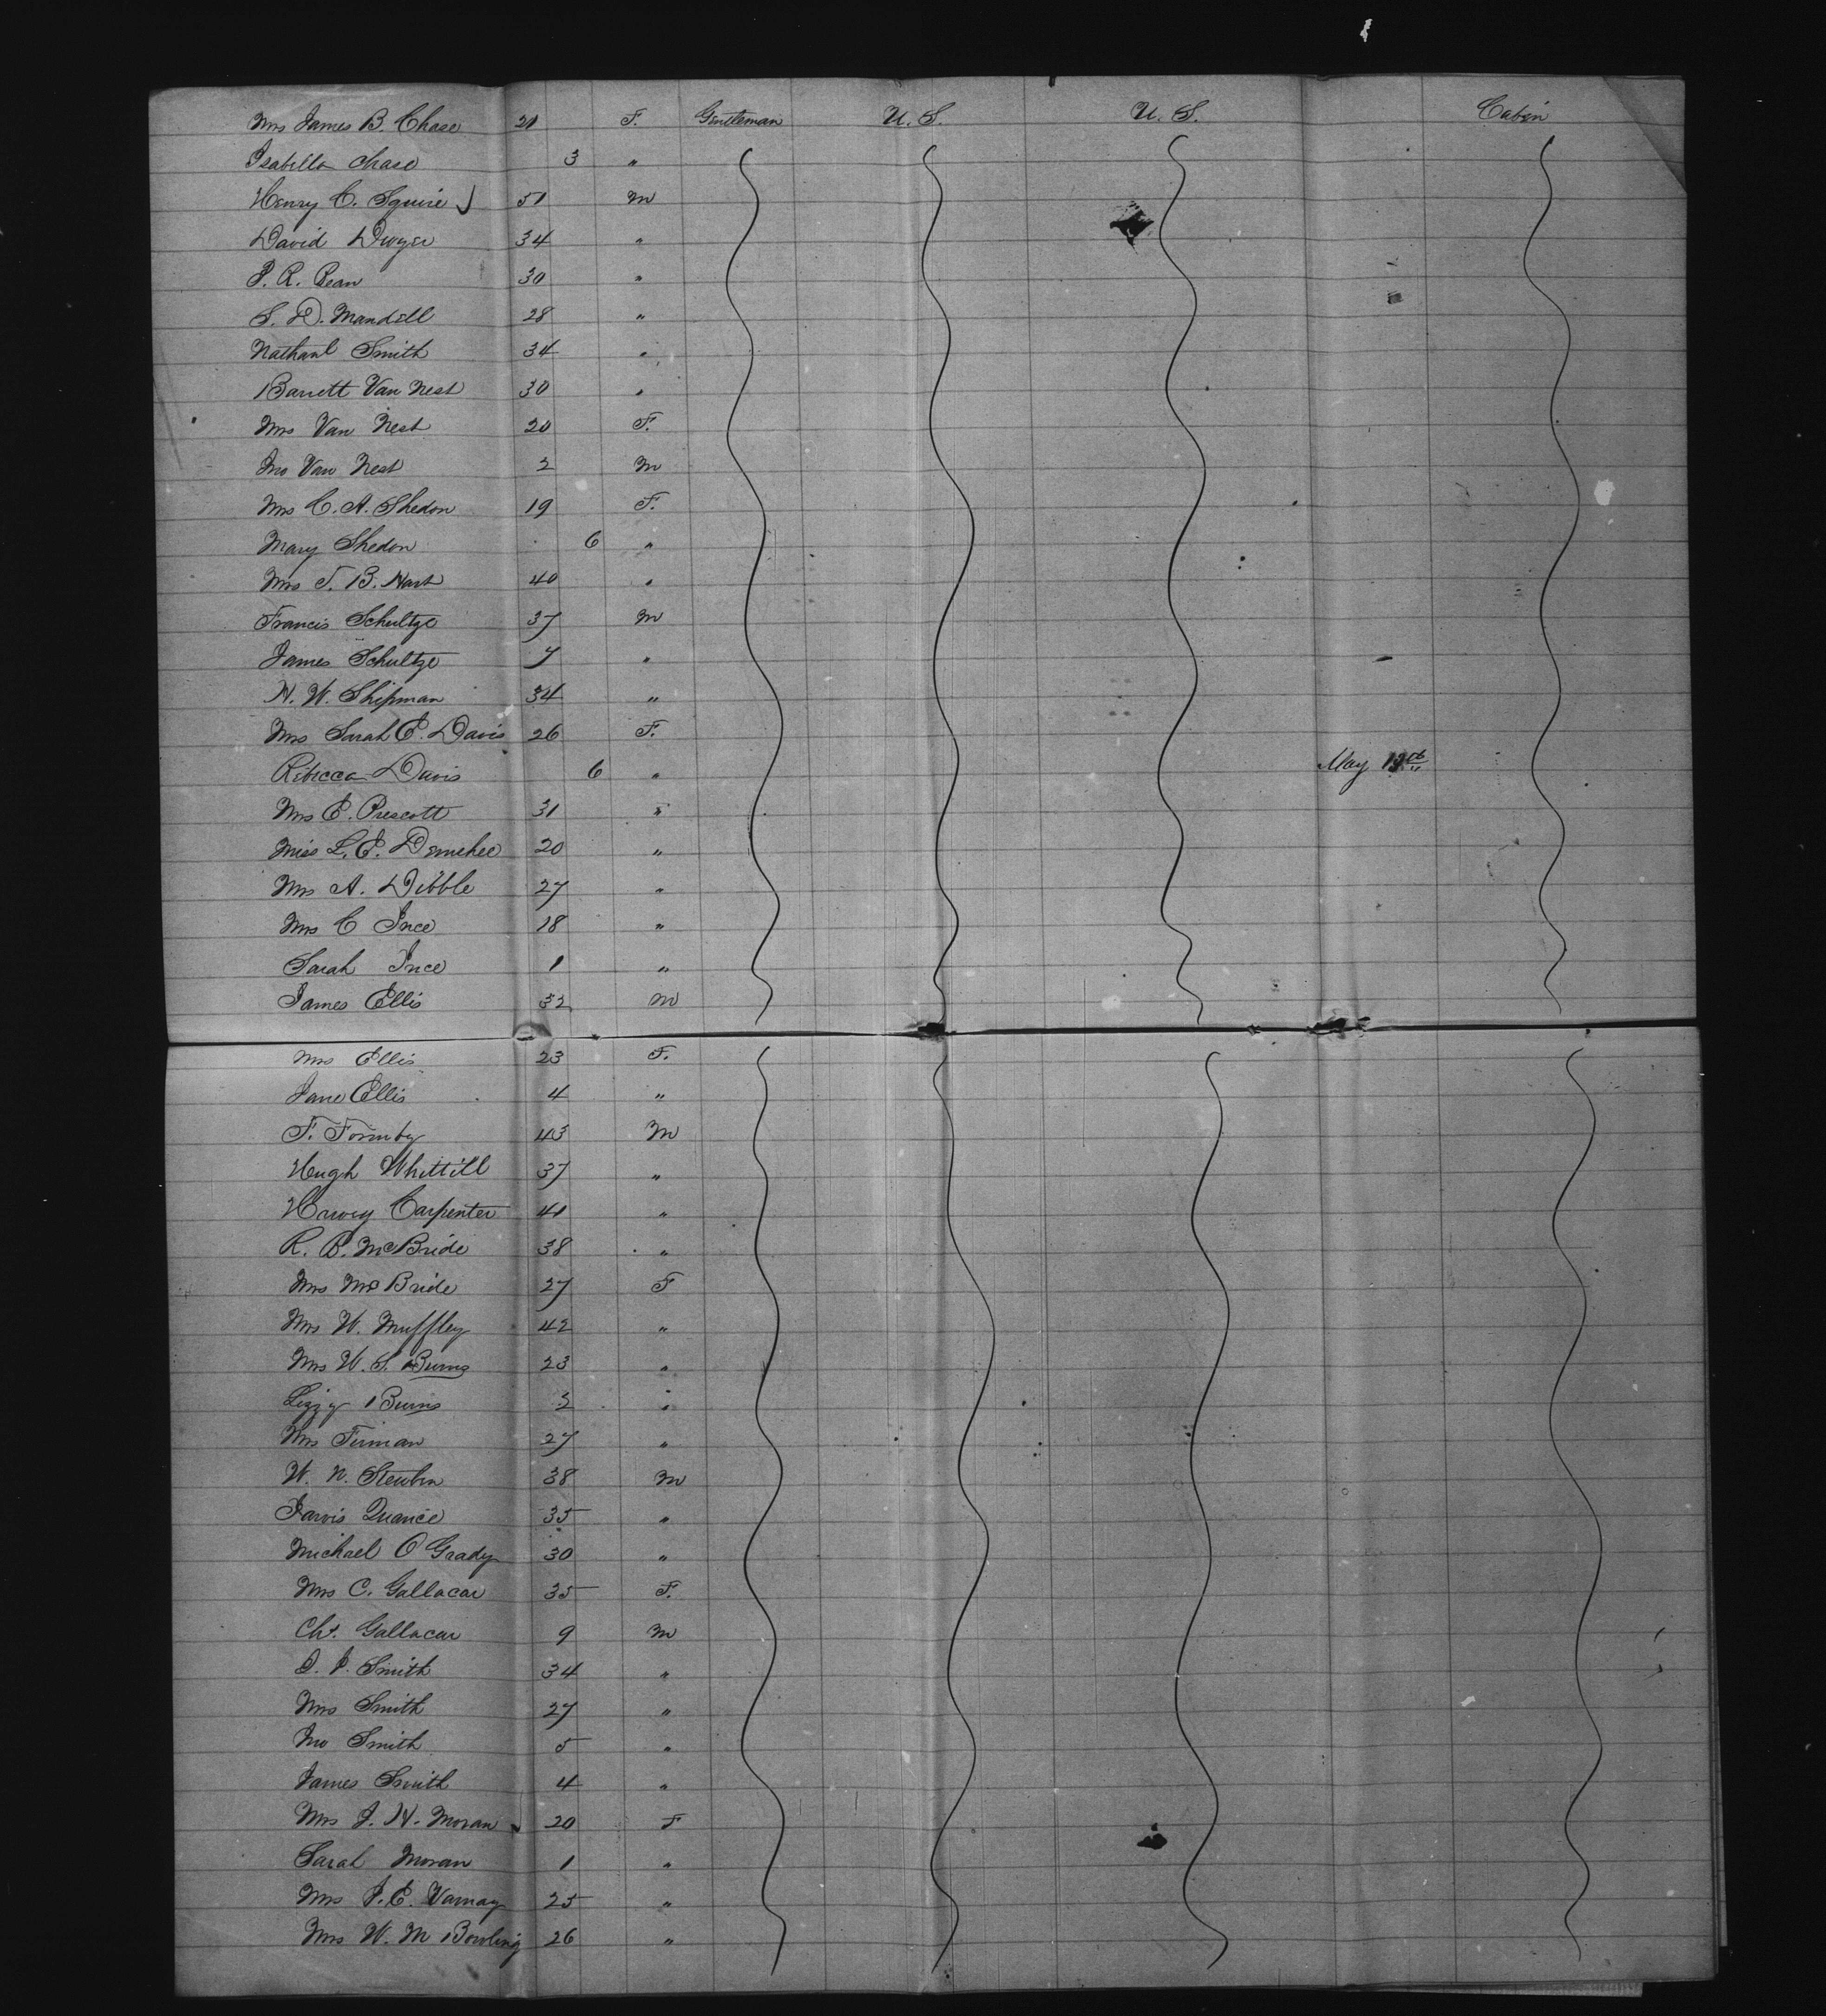 Mrs James B. Chase 21 F. Gentleman U. S. U. S. Cabin
Isabella Chase 3 "
Henry C. Squire 51 M
David Dwyer 34 "
P. R. Bean 30 "
S. D. Mandell 28 "
Nathanl Smith 34 "
Barrett Van Nest 30 "
Mrs Van Nest 20 F.
Jno Van Nest 2 M
Mrs C. A. Shedon 19 F.
Mary Shedon 6 "
Mrs T. B. Hart 40 "
Francis Schultze 37 M
James Schultze 7 "
H. W. Shipman 34 "
Mrs Sarah E. Davis 26 F.
Rebecca Davis 6 " May 13th
Mrs E. Prescott 31 "
Miss L. E. 20 "
Mrs A. Dibble 27 "
Mrs C Ince 18 "
Sarah Ince 1 "
James Ellis 32 M
Mrs Ellis 23 F.
Jane Ellis 4 "
F. Formby 43 M
Hugh Whittill 37 "
Harvey Carpenter 41 "
R. B. McBride 38 "
Mrs McBride 27 F
Mrs W. Muffley 42 "
Mrs W. S. Burns 23 "
Lizzy Burns 2 "
Mrs Firman 27 "
W. N. Steuben 38 M
Jarvis Quance 35 "
Michael O Grady 30 "
Mrs C. Gallacar 35 F.
Chs. Gallacar 9 M
Smith 34 "
Mrs Smith 27 "
Jno Smith 5 "
James Smith 4 "
Mrs J. H. Moran 20 F
Sarah Moran 1 "
Mrs J. E. Varnay 25 "
Mrs W. M Bowling 26 "